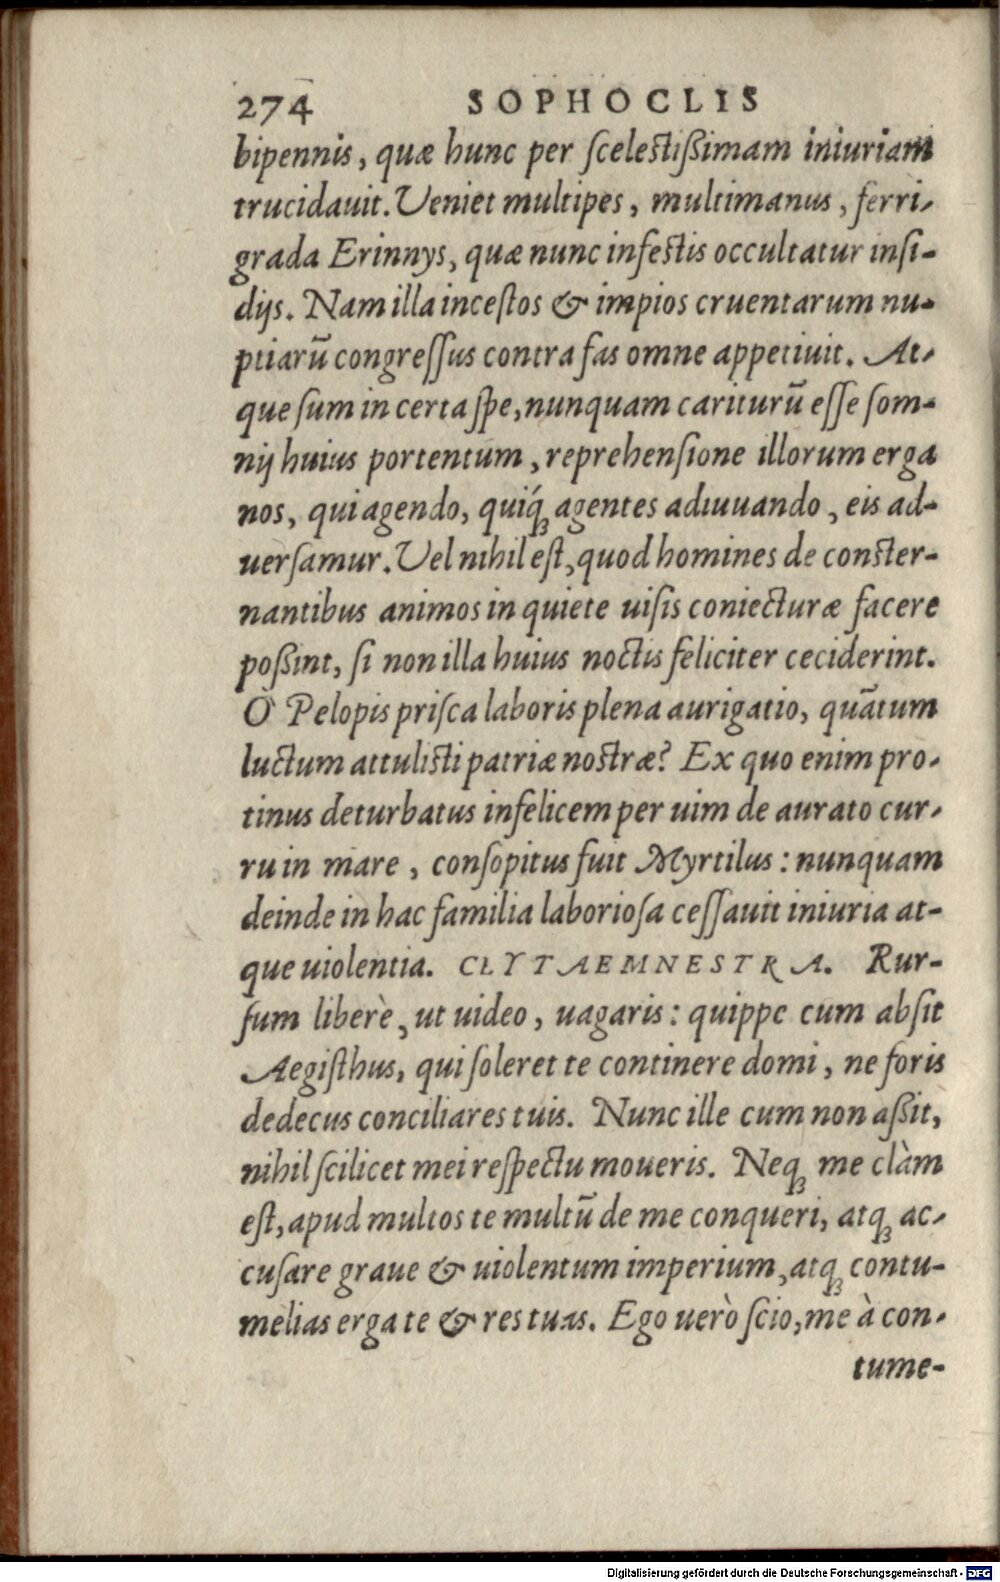 274 SOPHOCLIS
bipennis, quæ hunc per ſceleſtißimam iniuriam
trucidauit. Veniet multipes, multimanus, ferri-
grada Erinnys, quæ nunc infeſtis occultatur inſi-
dijs. Nam illa inceſtos & impios cruentarum nu-
ptiarũ congreſſus contra fas omne appetiuit. At-
que ſum in certa ſpe, nunquam cariturũ eſſe ſom-
nij huius portentum, reprehenſione illorum erga
nos, qui agendo, quiq́ꝫ agentes adiuuando, eis ad-
uerſamur. Vel nihil eſt, quod homines de conſter-
nantibus animos in quiete uiſis coniecturæ facere
poßint, ſi non illa huius noctis feliciter ceciderint.
Ò Pelopis priſca laboris plena aurigatio, quãtum
luctum attuliſti patriæ noſtræ? Ex quo enim pro-
tinus deturbatus infelicem per uim de aurato cur-
ru in mare, conſopitus fuit Myrtilus: nunquam
deinde in hac familia laborioſa ceſſauit iniuria at-
que uiolentia. CLYTAEMNESTRA. Rur-
ſum liberè, ut uideo, uagaris: quippe cum abſit
Aegiſthus, qui ſoleret te continere domi, ne foris
dedecus conciliares tuis. Nunc ille cum non aßit,
nihil ſcilicet mei reſpectu moueris. Neqꝫ me clàm
eſt, apud multos te multũ de me conqueri, atqꝫ ac-
cuſare graue & uiolentum imperium, atqꝫ contu-
melias erga te & res tuas. Ego uerò ſcio, me à con-
tume-
Digitalisierung gefördert durch die Deutsche Forschungsgemeinschaft - DFG